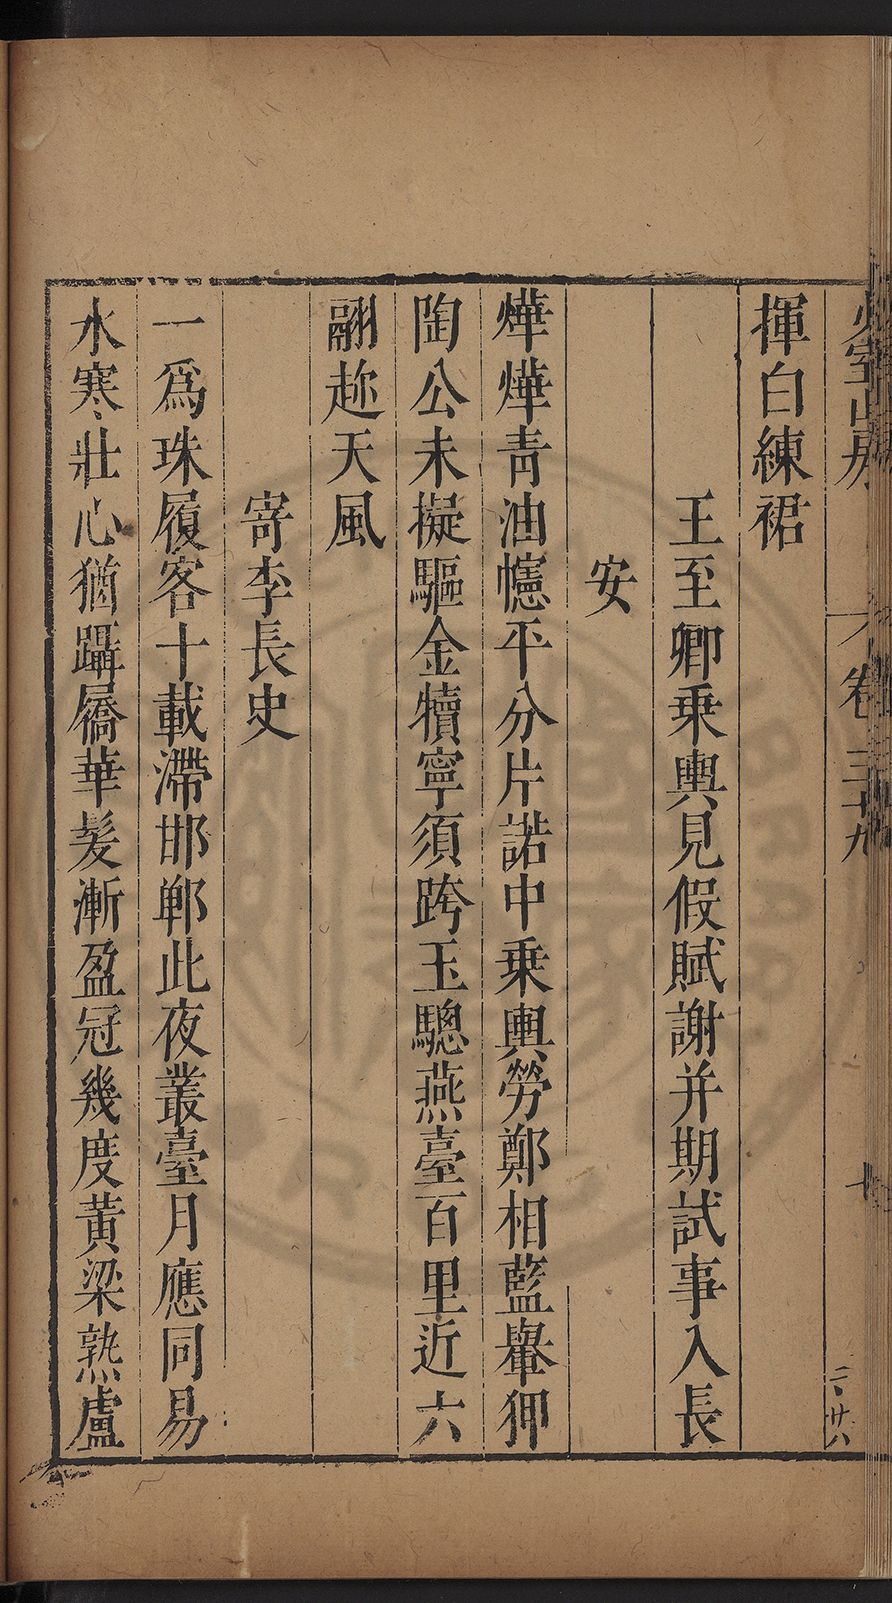 少室山房
卷三十九
十
揮白練裙
王至卿乘輿見假賦謝并期試事入長
安
燁燁青油幰平分片諾中乘輿勞鄭相藍轝狎
陶公未擬驅金犢寧須跨玉驄燕臺百里近六
翮趂天風
寄李長史
一爲珠履客十載滯邯鄲此夜叢臺月應同易
水寒壯心猶躡屩華髮漸盈冠幾度黃梁熟盧